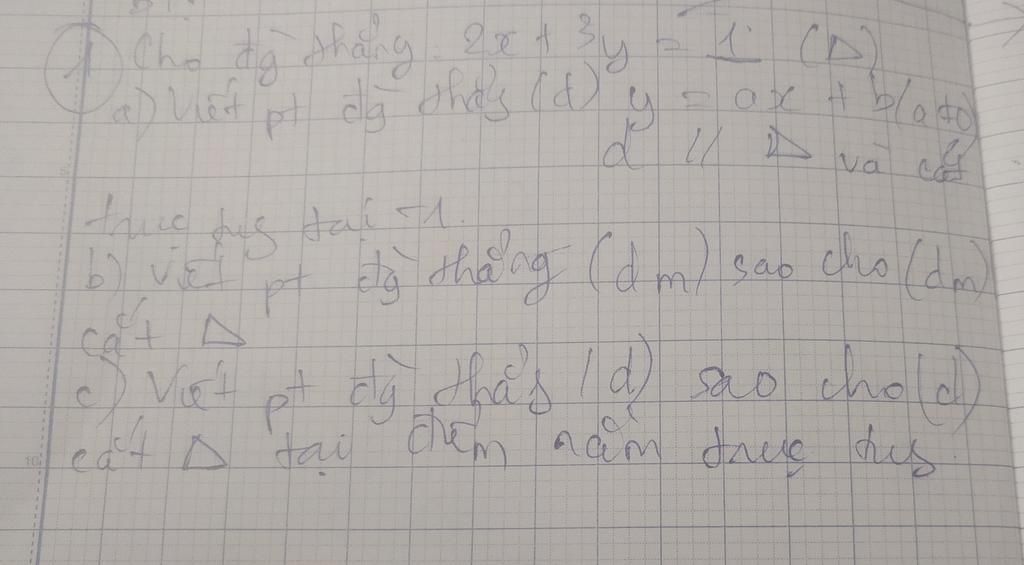 1 Cho đg thẳng 2x + 3y = 1 (Δ)
a) Viết pt đg thẳg (d) y = ax + b (a ≠ 0)
d // Δ và cắt
trục tug tại -1.
b) Viết pt đg thẳng (dm) sao cho (dm)
cắt Δ
c) Viết pt đg thẳg (d) sao cho (d)
cắt Δ tại điểm nằm trục tug